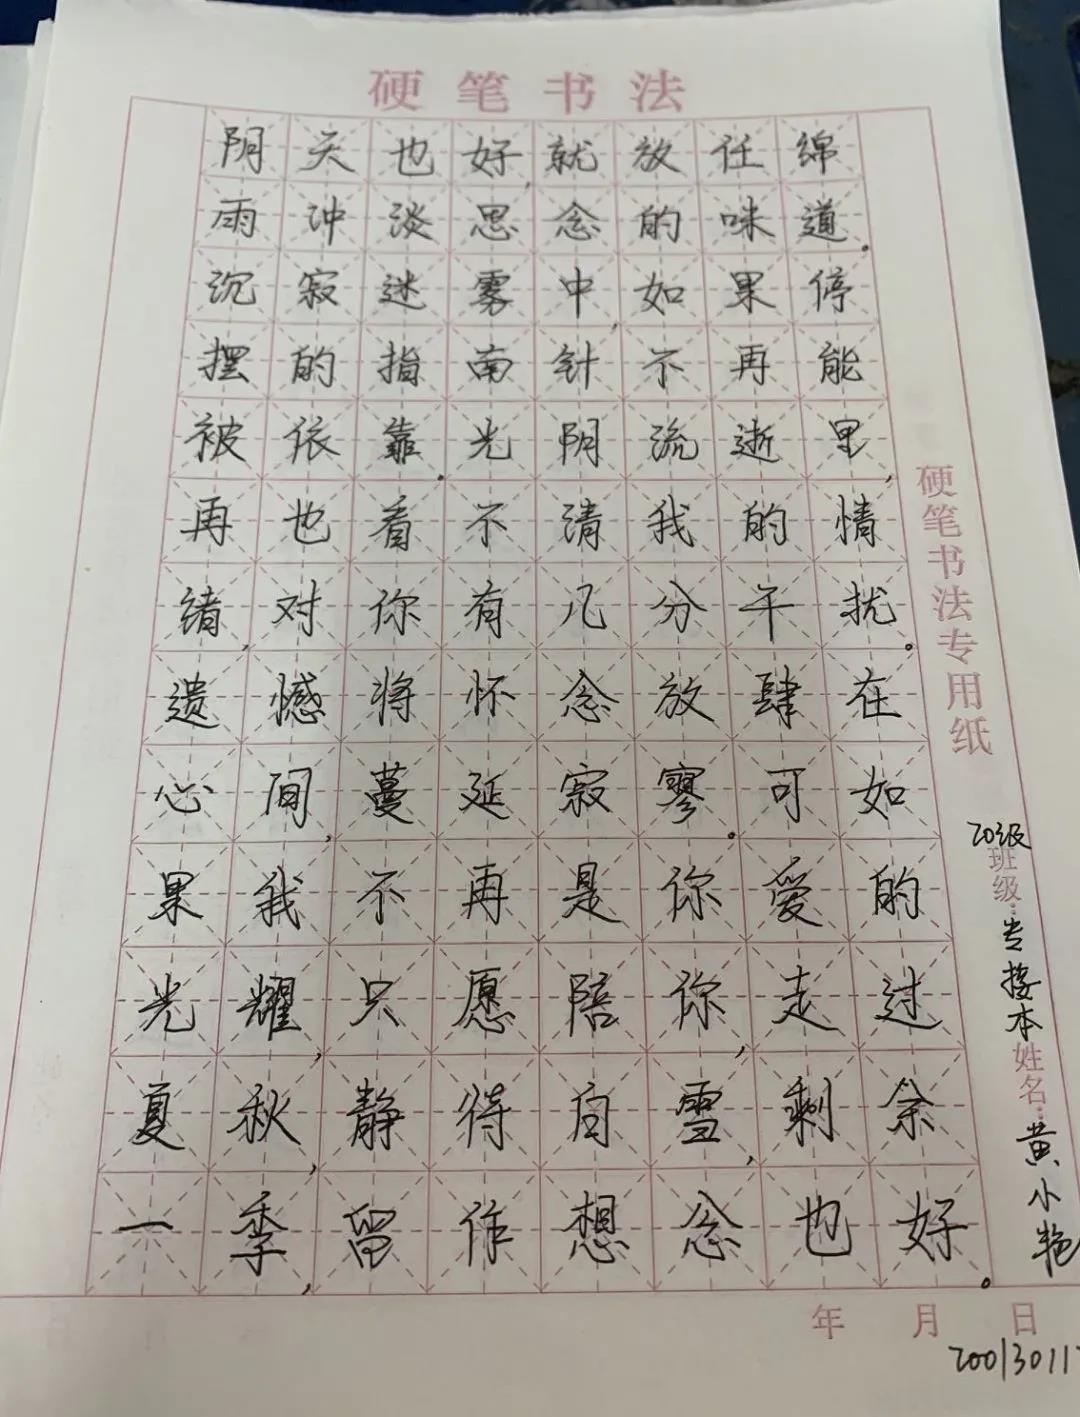 硬笔书法
阴天也好,就放任绵
雨冲淡思念的味道。
沉寂迷雾中,如果停
摆的指南针不再能
被依靠.光阴流逝里,
再也看不清我的情
绪,对你有几分干扰。
遗憾将怀念放肆在
心间,蔓延寂寥。可如
果我不再是你爱的
光耀,只愿陪你,走过
夏秋,静待白雪,剩余
一季,留作想念也好。
硬笔书法专用纸
20级
班级:专接本
姓名:黄小艳
年 月 日
200130117